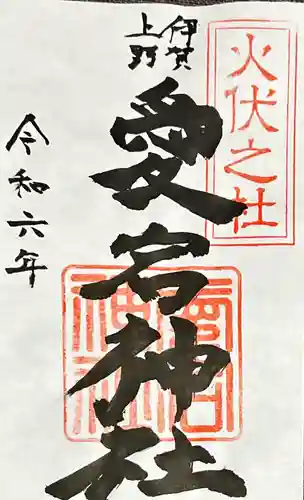 火伏之社
伊賀
上野
愛宕神社
令和六年
愛宕
神社